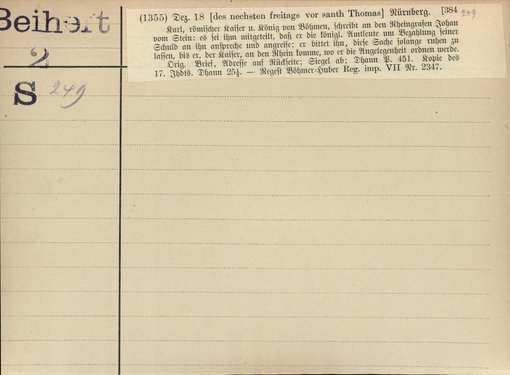 Beiheft
2
S 249
(1355) Dez. 18 [des nechsten freitags vor santh Thomas] Nürnberg. [384 249
Karl, römischer Kaiser u. König von Böhmen, schreibt an den Rheingrafen Johan
vom Stein: es sei ihm mitgeteilt, daß er die königl. Amtleute um Bezahlung seiner
Schuld an ihn anspreche und angreife; er bittet ihn, diese Sache solange ruhen zu
lassen, bis er, der Kaiser, an den Rhein komme, wo er die Angelegenheit ordnen werde.
Orig. Brief, Adresse auf Rückseite; Siegel ab; Dhaun P. 451. Kopie des
17. Jhdts. Dhaun 254. — Regest Böhmer-Huber Reg. imp. VII Nr. 2347.